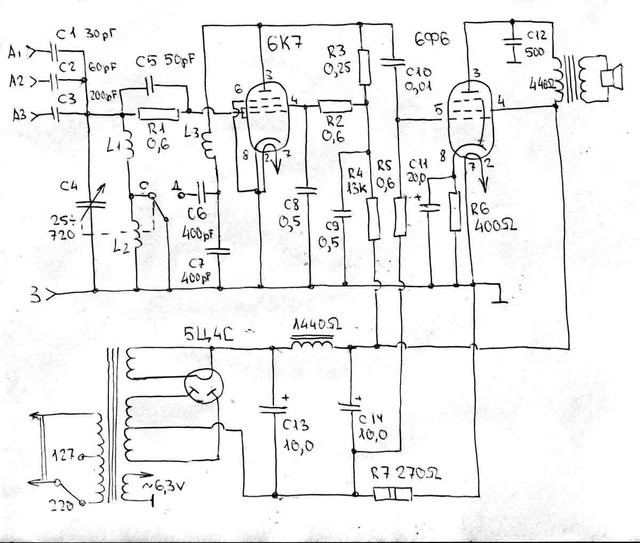 C1 30pF
A1
C2
60pF
A2
C3
200pF
A3
C5 50pF
R1
0,6
L1
L2
L3
C4
25÷
720
C
Д
C6
400pF
C7
400pF
З
6К7
3
6
4
8
2
7
R2
0,6
R3
0,25
C8
0,5
C9
0,5
R4
13K
R5
0,6
C10
0,01
6Ф6
3
5
4
8
7
2
C11
20,0
+
R6
400Ω
C12
500
440Ω
5Ц4С
1440Ω
+
C13
10,0
+
C14
10,0
R7 270Ω
127
220
~6,3V